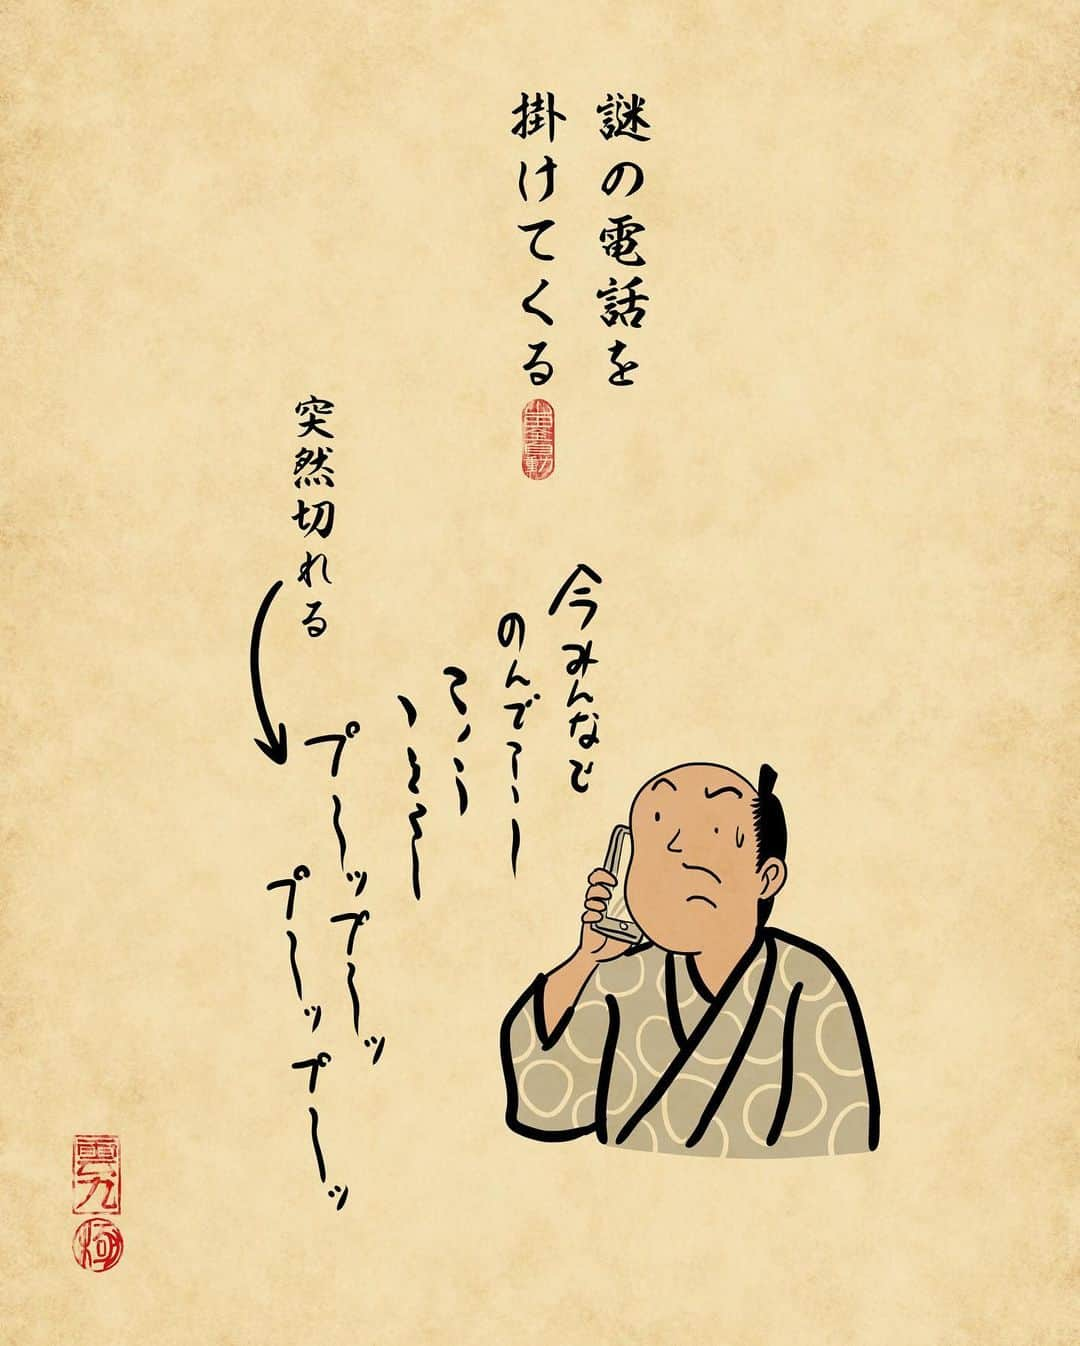 謎の電話を
掛けてくる
今みんなで
のんでー
突然切れる
プ〜ップ〜ッ
プ〜ップ〜ッ
雲九
極